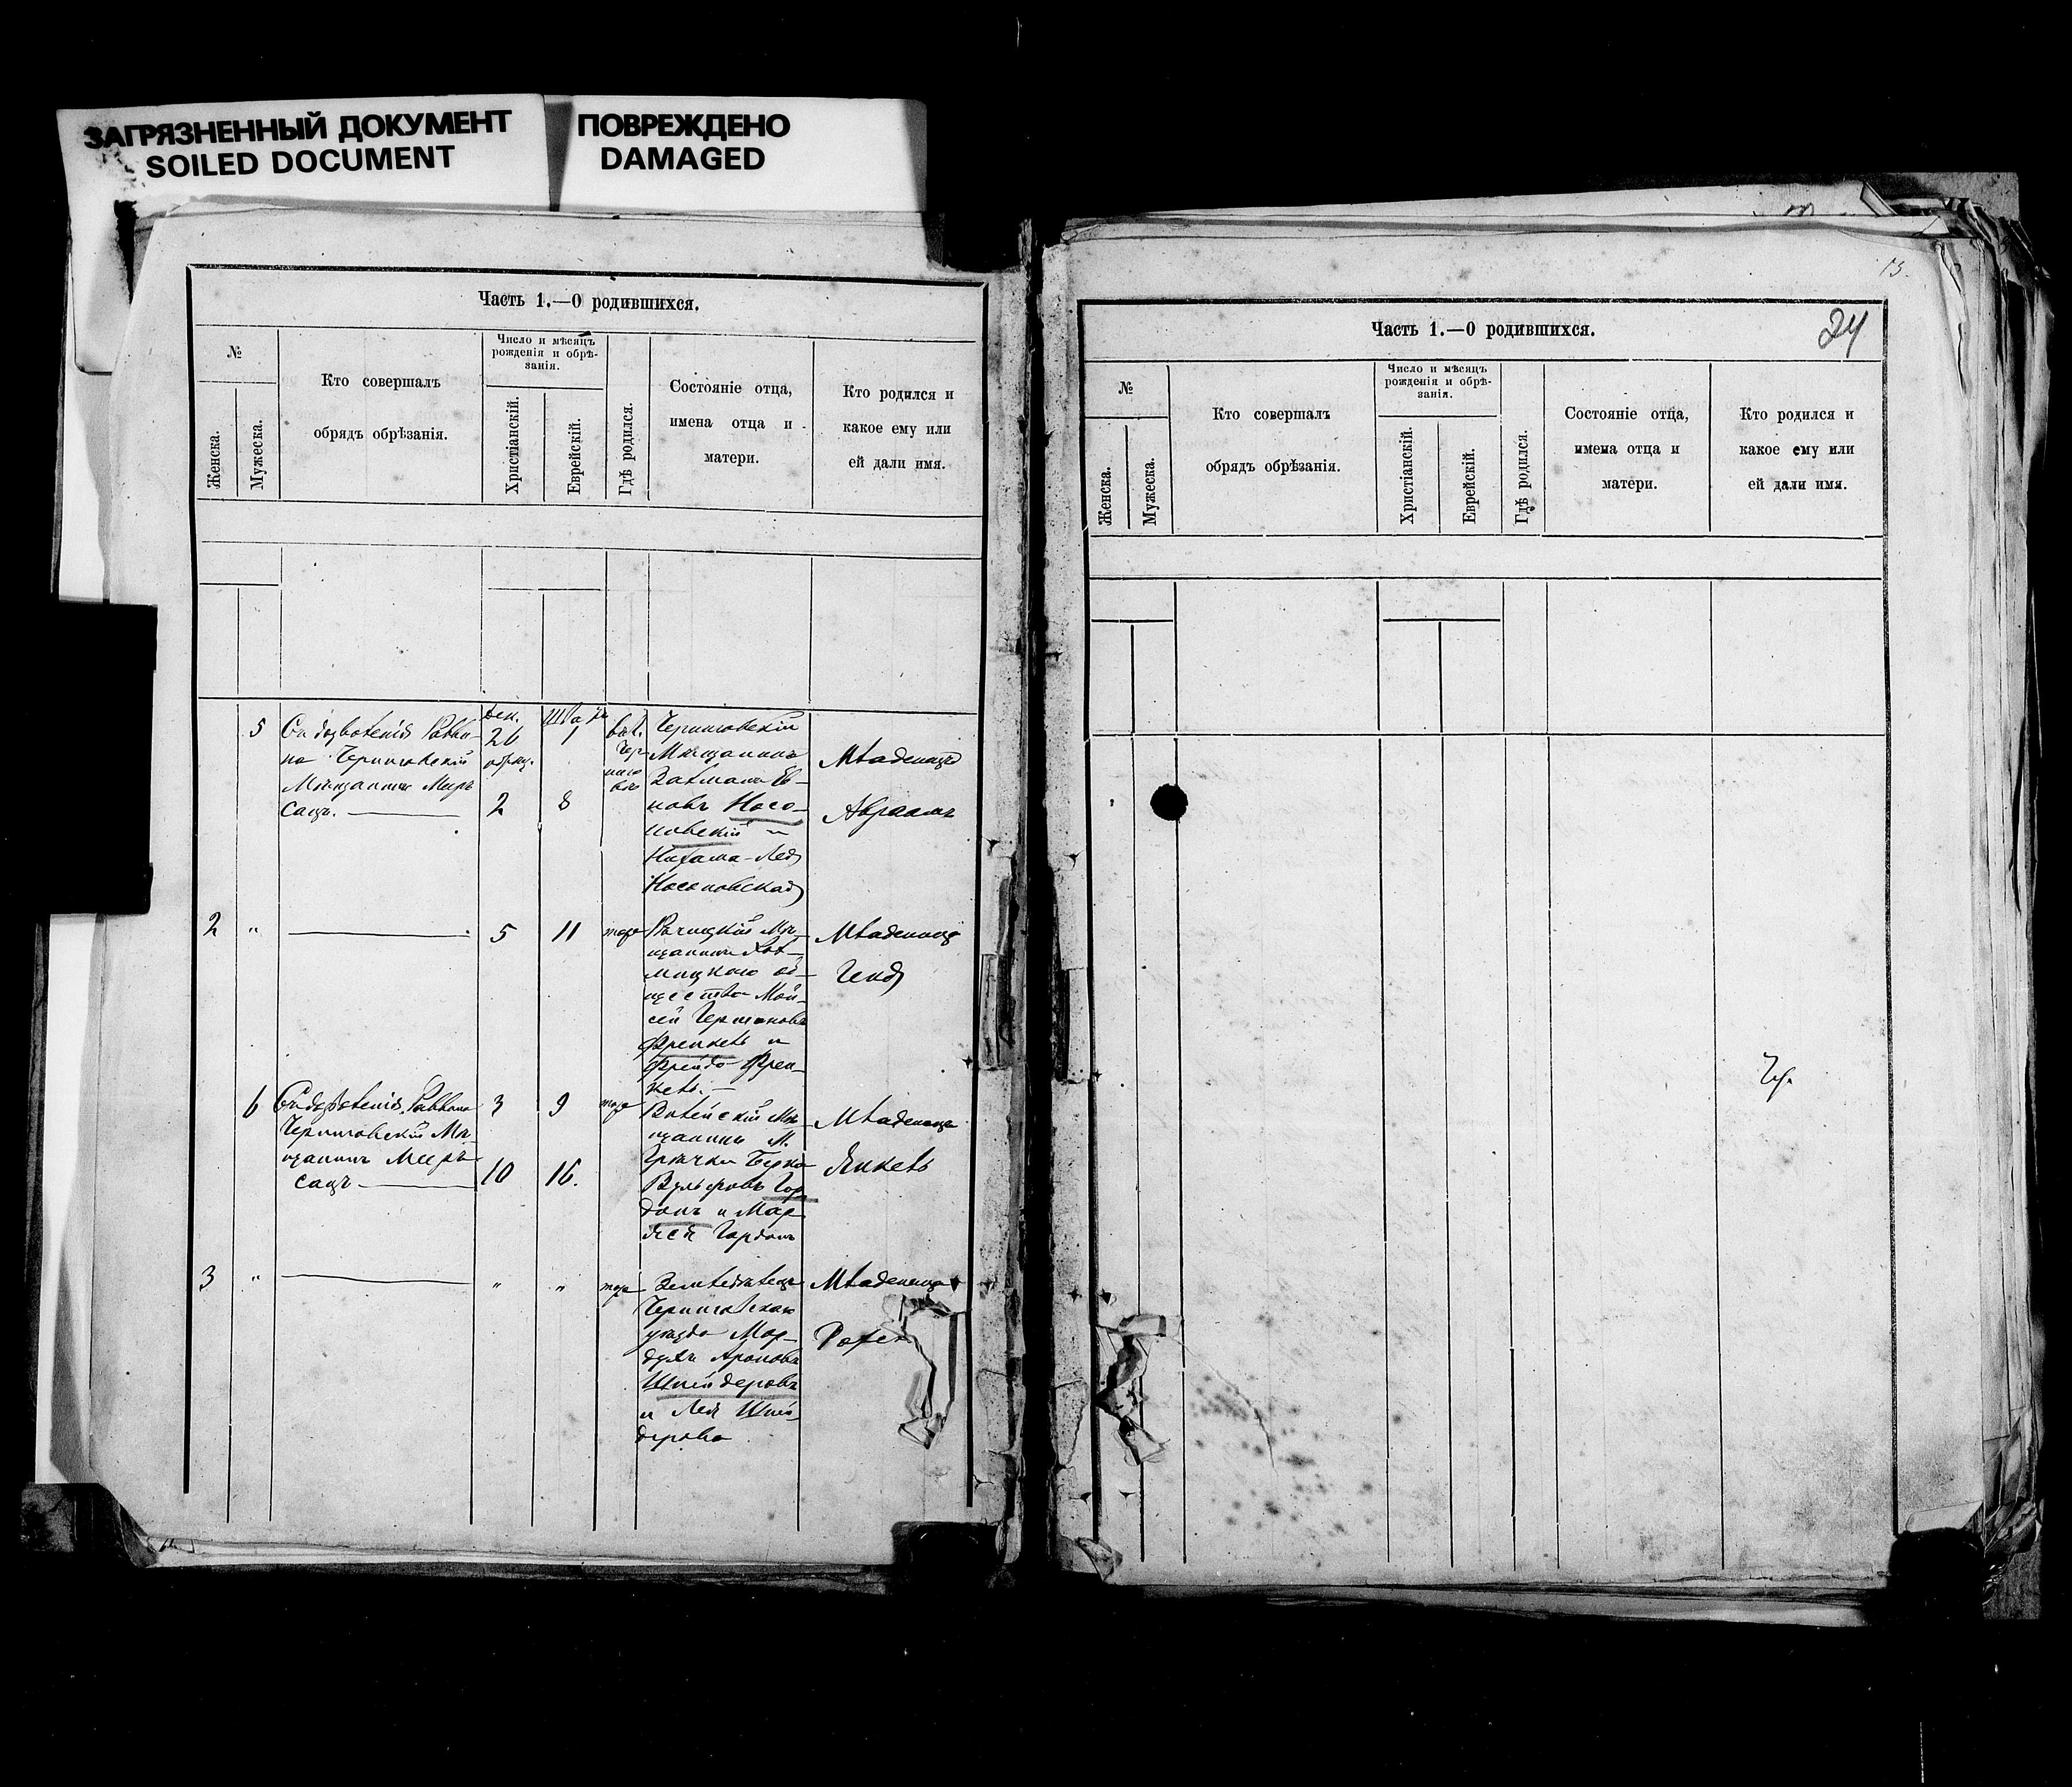 ЗАГРЯЗНЕННЫЙ ДОКУМЕНТ
SOILED DOCUMENT
ПОВРЕЖДЕНО
DAMAGED
Часть 1.—О родившихся.
№
Женска.
Мужеска.
Кто совершалъ
обрядъ обрѣзанія.
Число и мѣсяцъ
рожденія и обрѣ-
занія.
Христіанскій.
Еврейскій.
Гдѣ родился.
Состояніе отца,
имена отца и
матери.
Кто родился и
какое ему или
ей дали имя.
5
Съ дозволенія Равви-
на Черниговскій
Мѣщанинъ Меръ
Сацъ.
Дек.
26
обрѣз.
2
1
8
Черниговскій
Мѣщанинъ
Залманъ
Носо-
новскій и
Нихама-Лея
Носоновская
Младенецъ
Авраамъ
2
"
5
11
тоже
Рѣчицкій Мѣ-
щанинъ Хол-
мицкаго об-
щества Мой-
сей
Френкель и
Фрейда Френ-
кель.
Младеница
Геня
6
Съ дозволенія Раввина
Черниговскій Мѣ-
щанинъ Мееръ
Сацъ
3
10
9
16.
тоже
Мѣ-
щанинъ М.
Берка
Вульфовъ Гор-
донъ и Мар-
Гордонъ
Младенецъ
Янкель
3
"
"
"
тоже
Земледѣлецъ
Черниговскаго
уѣзда Мор-
духъ Ароновъ
Шнейдеровъ
и Лея Шней-
дерова
Младеница
13.
24
Часть 1.—О родившихся.
№
Женска.
Мужеска.
Кто совершалъ
обрядъ обрѣзанія.
Число и мѣсяцъ
рожденія и обрѣ-
занія.
Христіанскій.
Еврейскій.
Гдѣ родился.
Состояніе отца,
имена отца и
матери.
Кто родился и
какое ему или
ей дали имя.